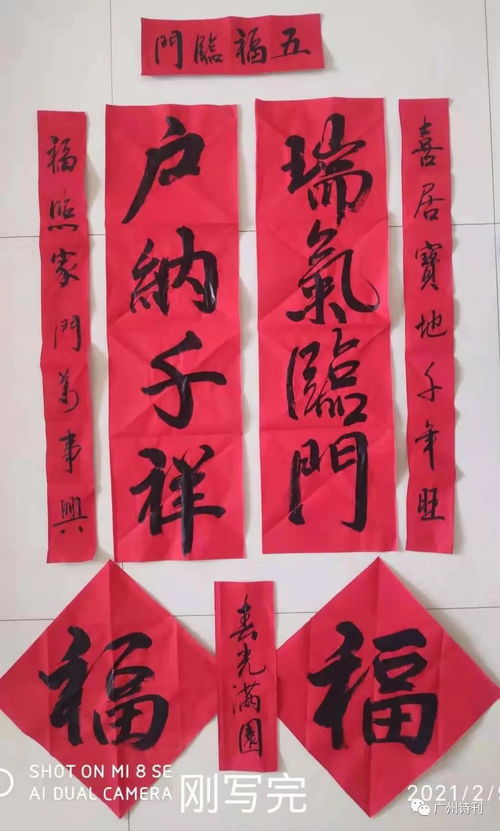 五福臨門
喜居寶地千年旺
瑞氣臨門
户納千祥
福照家門萬事興
福
春光满園
福
SHOT ON MI 8 SE
AI DUAL CAMERA
刚写完
2021/2/
广州诗刊